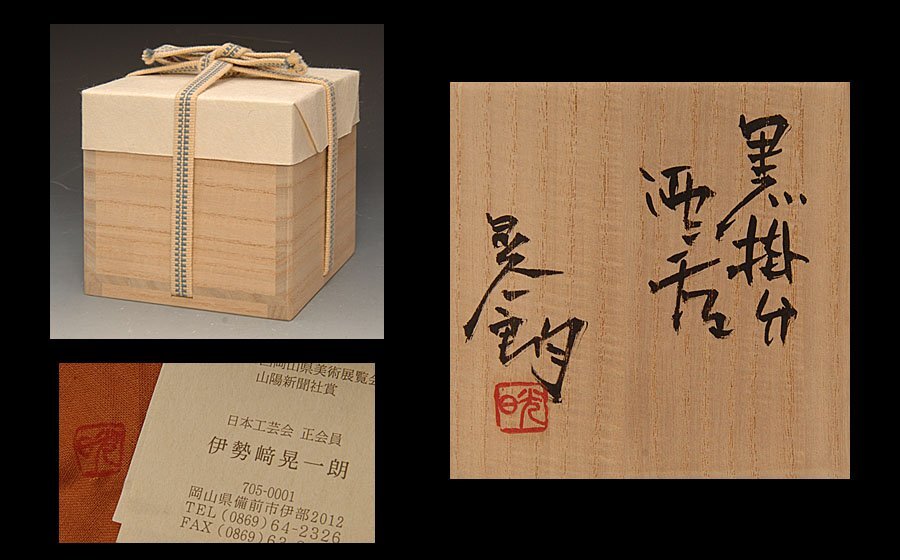 黒掛分
酒呑
晃一朗
晄
岡山県美術展覧会
山陽新聞社賞
日本工芸会 正会員
伊勢﨑晃一朗
705-0001
岡山県備前市伊部2012
TEL(0869)64-2326
FAX(0869)63